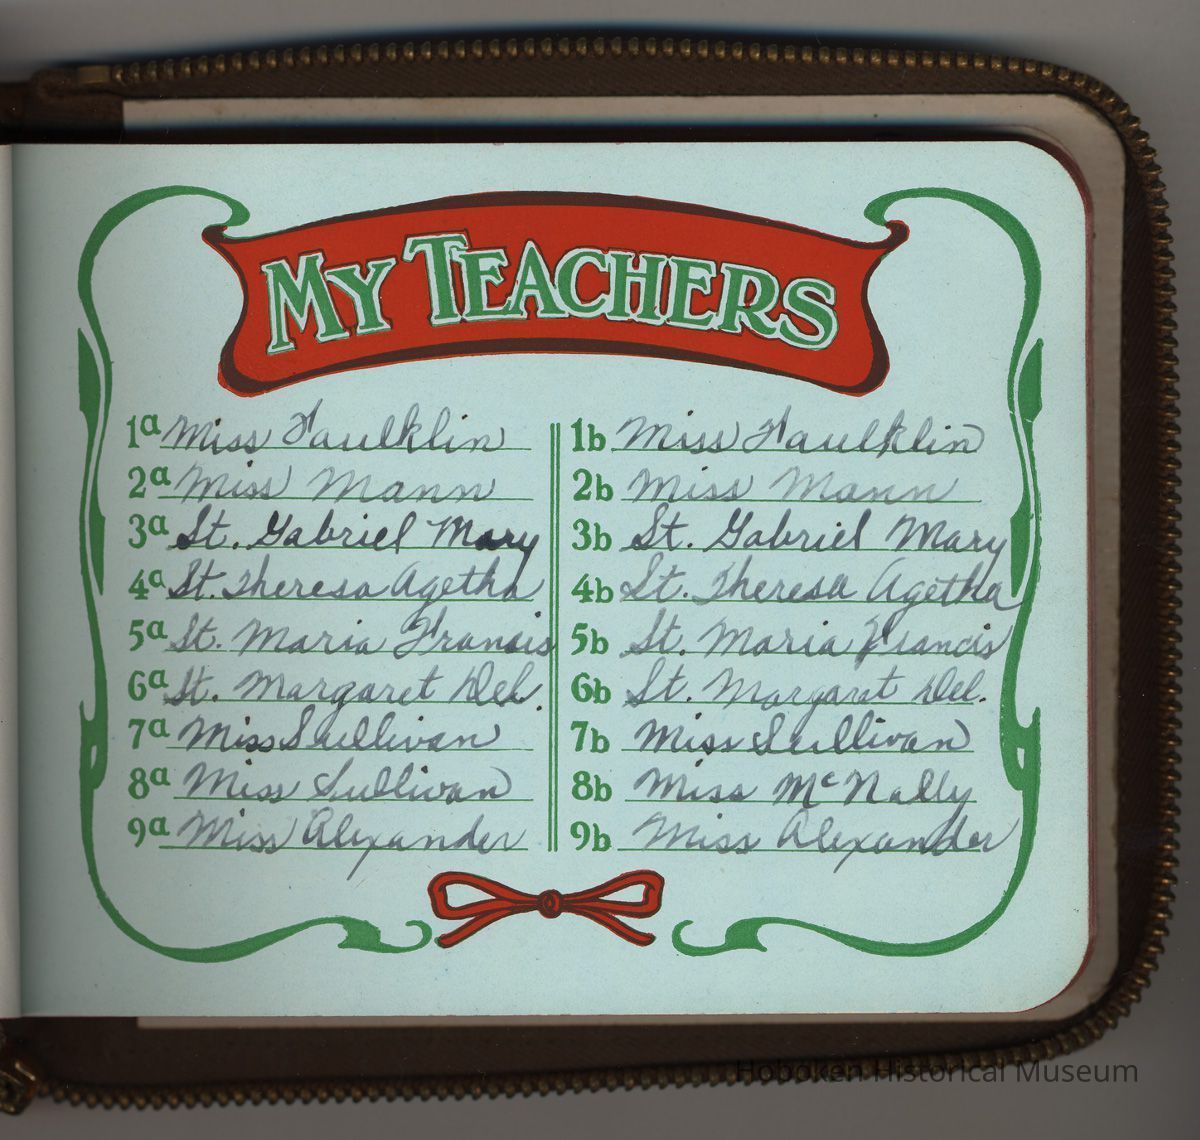 MY TEACHERS
1a Miss Faulklin
1b Miss Faulklin
2a Miss Mann
2b Miss Mann
3a St. Gabriel Mary
3b St. Gabriel Mary
4a St. Theresa Agetha
4b St. Theresa Agetha
5a St. Maria Francis
5b St. Maria Francis
6a St. Margaret Del.
6b St. Margaret Del.
7a Miss Sullivan
7b Miss Sullivan
8a Miss Sullivan
8b Miss McNally
9a Miss Alexander
9b Miss Alexander
Hoboken Historical Museum